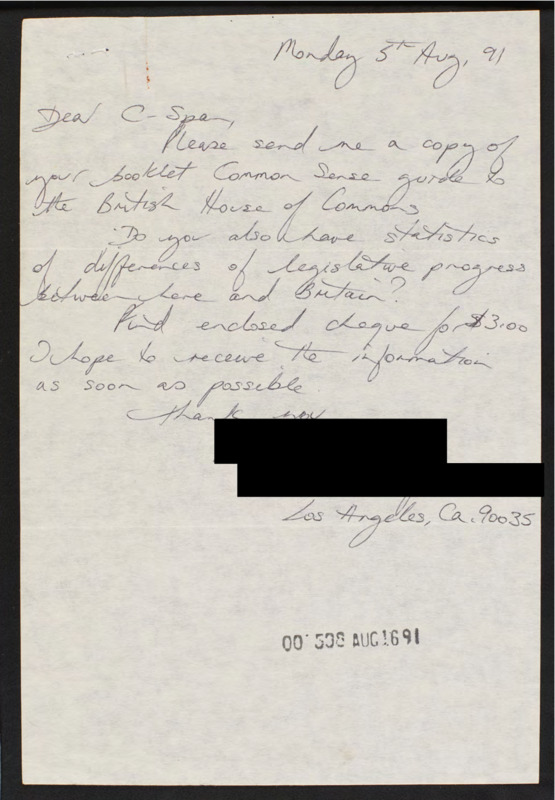 Monday 5th Aug, 91
Dear C-Span,
Please send me a copy of
your booklet Common Sense guide to
the British House of Commons
Do you also have statistics
of differences of legislative progress
between here and Britain?
Find enclosed cheque for $3.00
I hope to receive the information
as soon as possible.
thank you
Los Angeles, Ca. 90035
00 508 AUG 16 91